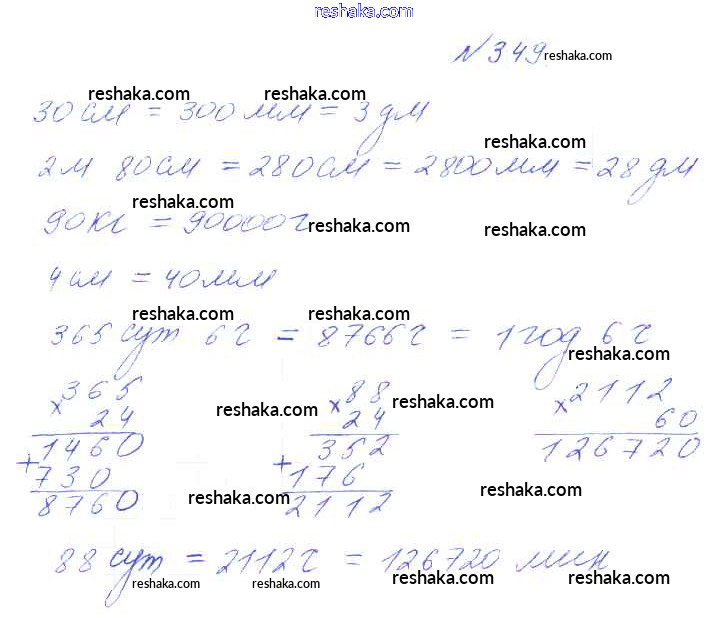 reshaka.com
N 349 reshaka.com
reshaka.com reshaka.com
30 см = 300 мм = 3 дм
reshaka.com
2 м 80 см = 280 см = 2800 мм = 28 дм
reshaka.com
90 кг = 90000 г reshaka.com reshaka.com
4 см = 40 мм
reshaka.com reshaka.com
365 сут 6 ч = 8766 ч = 1 год 6 ч
reshaka.com
× 365 × 88 × 2112
24 24 60
reshaka.com reshaka.com
1460 352 126720
+ +
730 176
reshaka.com reshaka.com
8760 2112
88 сут = 2112 ч = 126720 мин
reshaka.com reshaka.com reshaka.com reshaka.com